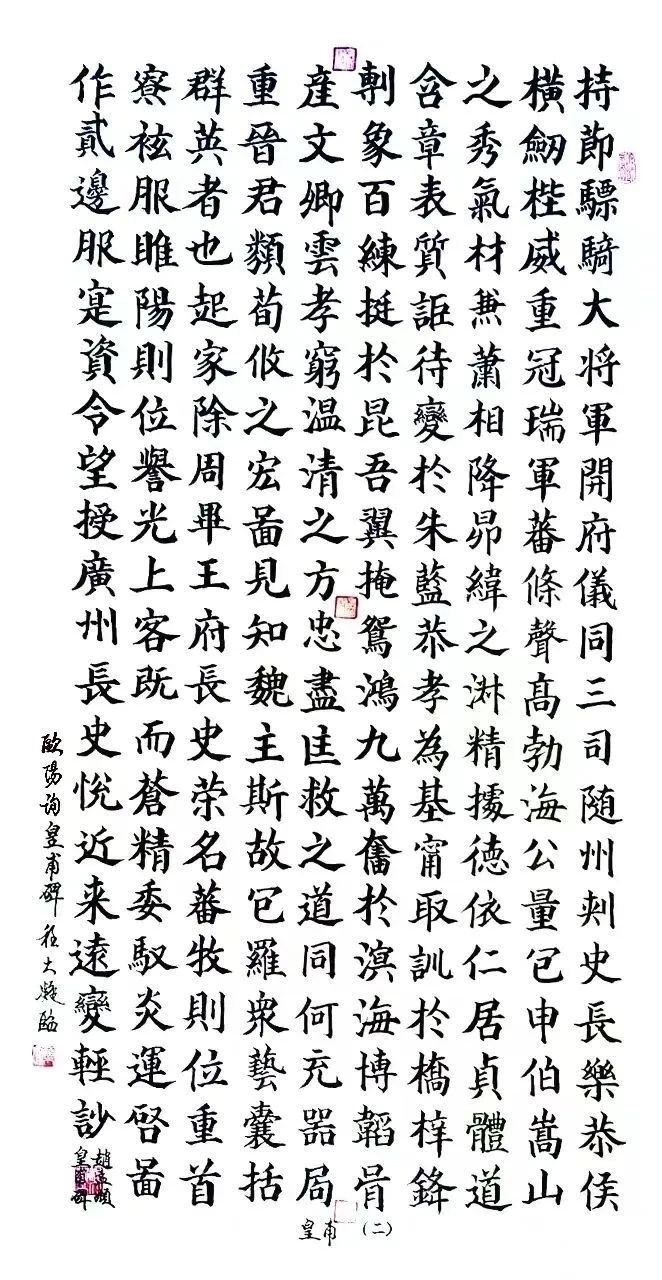 持節驃騎大将軍開府儀同三司随州刾史長樂恭侯
橫劒梐威重冠瑞軍蕃條聲髙勃海公量包申伯嵩山
之秀氣材兼蕭相降昴緯之淋精據德依仁居貞體道
含章表質詎待變於朱藍恭孝為基甯取訓於橋梓鋒
剸象百練挺於昆吾翼掩鴛鴻九萬奮於溟海博韜骨
産文卿雲孝窮温清之方忠盡匡救之道同何充器局
重晉君類荀攸之宏啚見知魏主斯故包羅衆藝囊括
群英者也起家除周畢王府長史荣名蕃牧則位重首
寮袨服睢陽則位譽光上客既而蒼精委馭炎運啓啚
作貳邊服寔資令望授廣州長史悅近来遠變輕訬
趙孟頫
皇甫碑
歐陽詢皇甫碑 程大凝臨
皇甫（二）